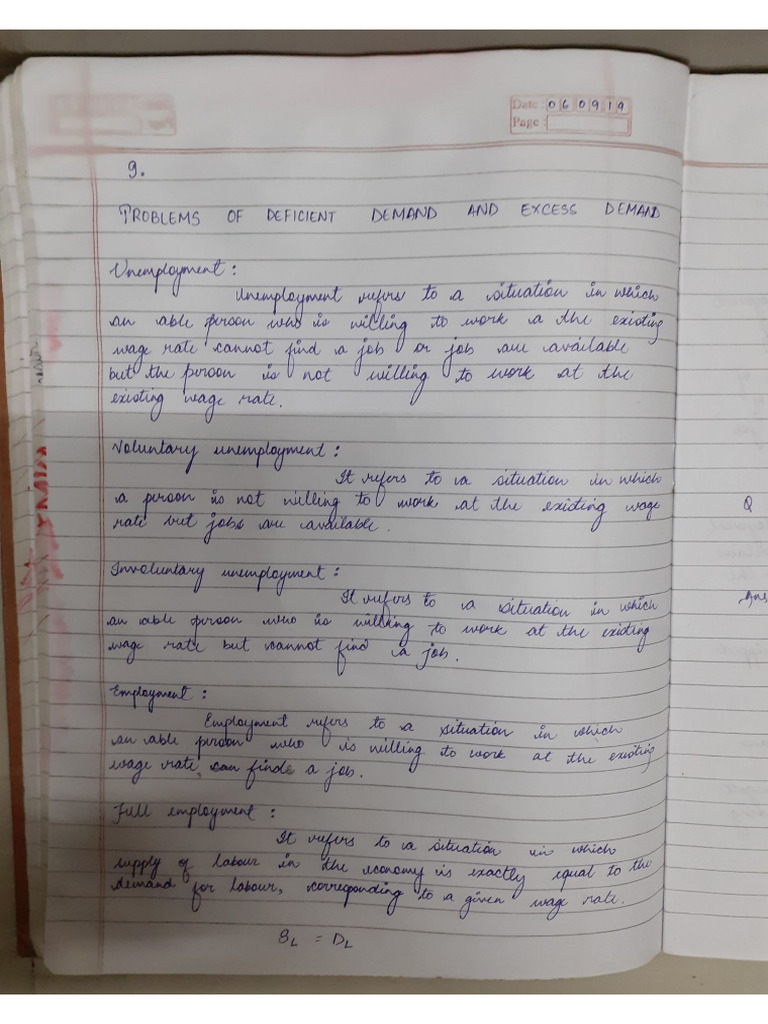 Date: 060919
Page:
9.
PROBLEMS OF DEFICIENT DEMAND AND EXCESS DEMAND
Unemployment:
Unemployment refers to a situation in which
an able person who is willing to work a the existing
wage rate cannot find a job or job are available
but the person is not willing to work at the
existing wage rate.
Voluntary unemployment:
It refers to a situation in which
a person is not willing to work at the existing wage
rate but jobs are available.
Involuntary unemployment:
It refers to a situation in which
an able person who is willking to work at the existing
wage rate but cannot find a job.
Employment:
Employment refers to a situation in which
an able person who is willing to work at the existing
wage rate, can finds a job.
Full employment:
It refers to a situation in which
supply of labour in the economy is exactly equal to the
demand for labour, corresponding to a given wage rate.
SL = DL
Q
Ans